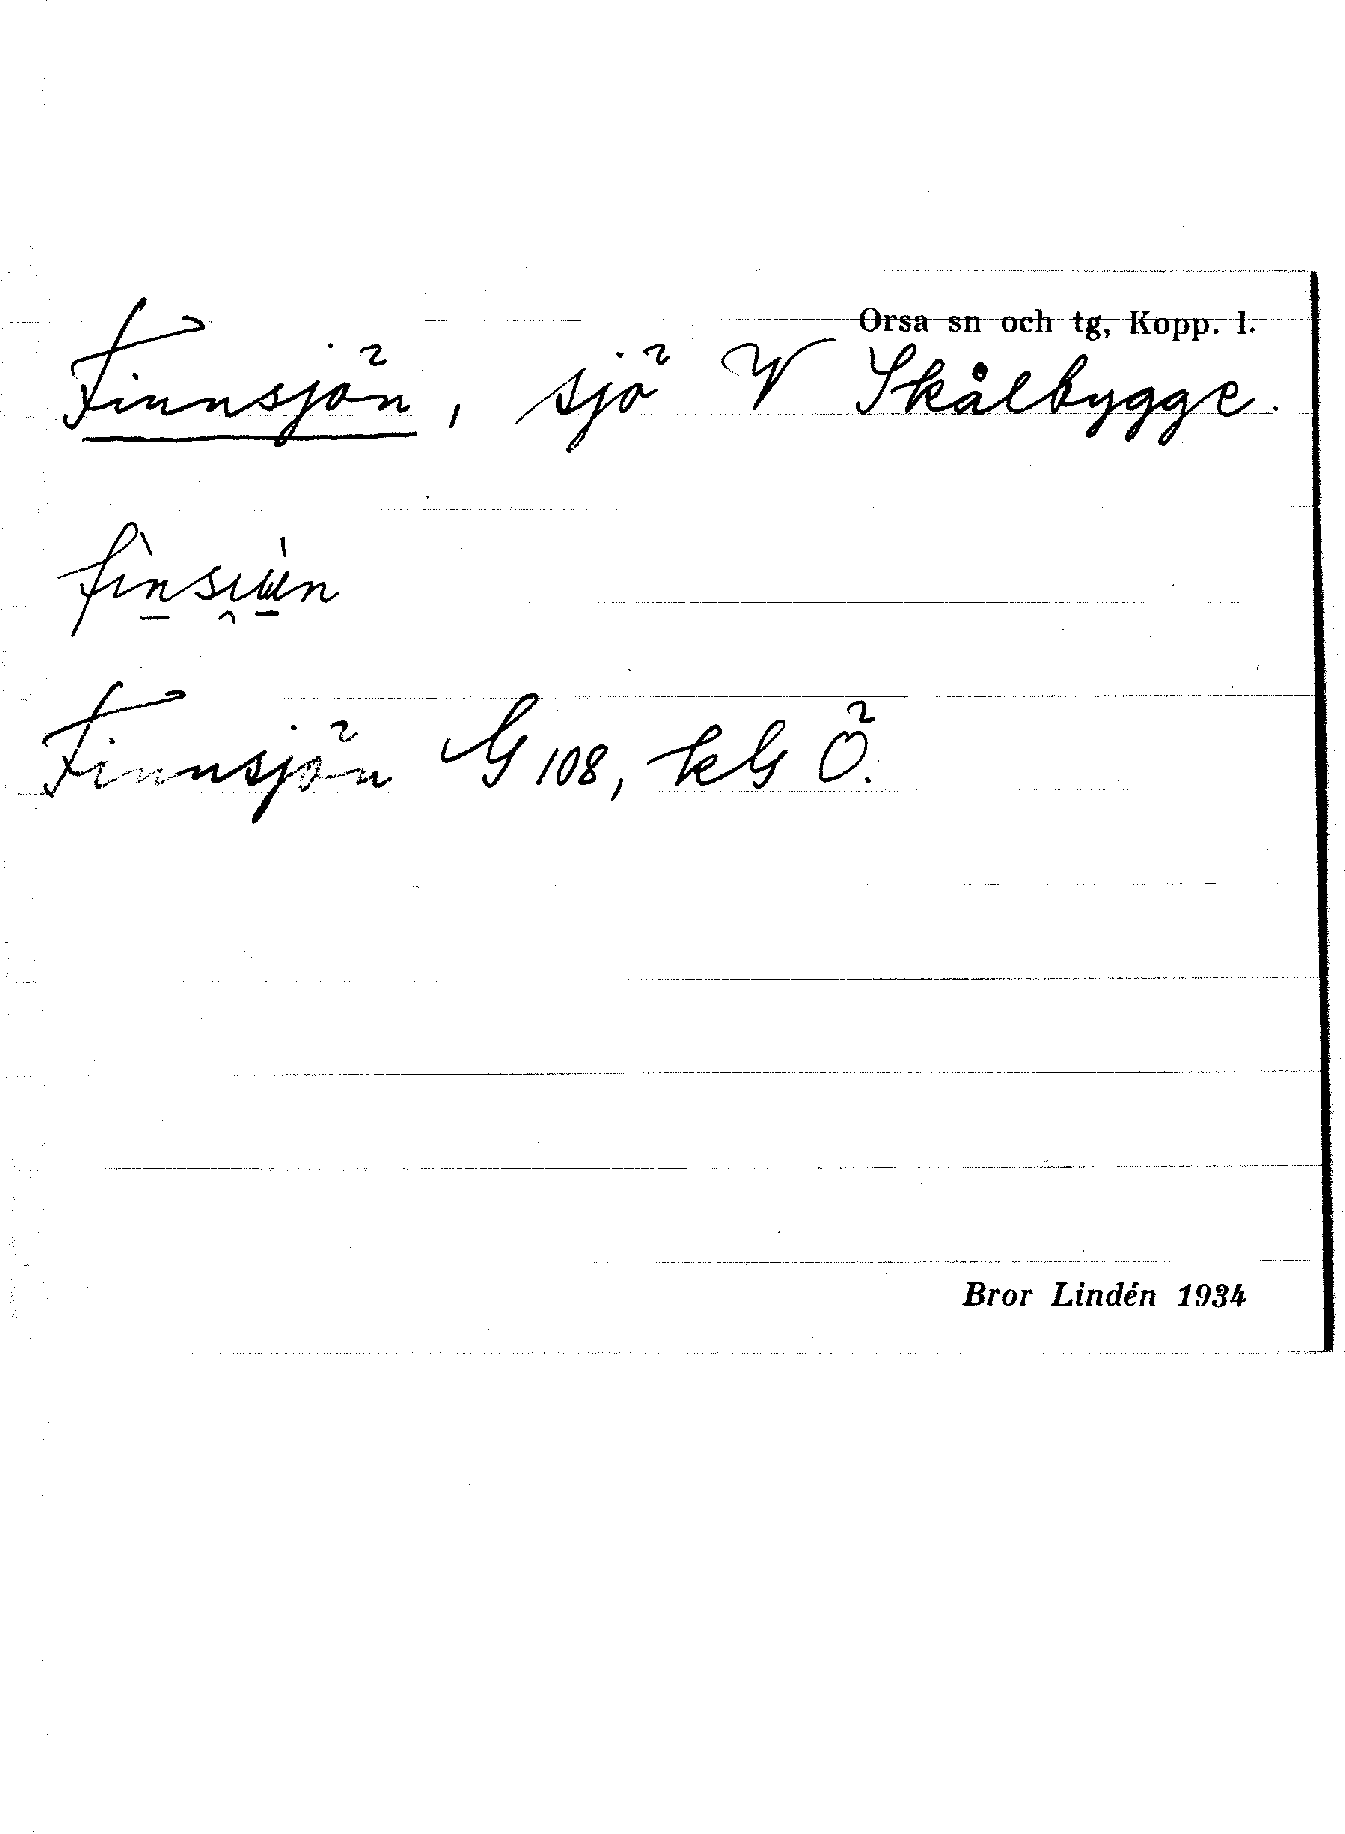 Orsa sn och tg, Kopp. l.
Finnsjön, sjö V Skålbygge.
Finnsjön G 108, kG Ö.
Bror Lindén 1934